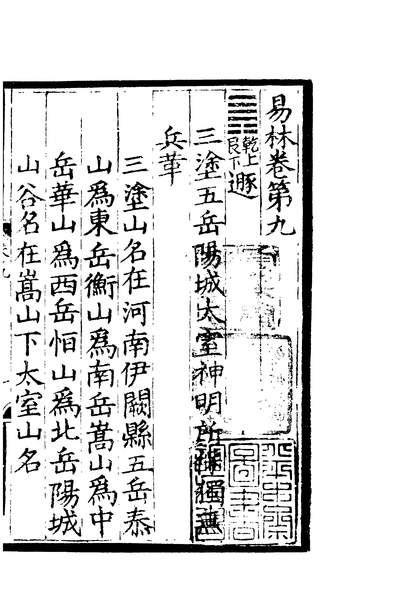 易林卷第九
乾上
艮下
遯
三塗五岳陽城太室神明所保獨無
兵革
三塗山名在河南伊闕縣五岳泰
山爲東岳衡山爲南岳嵩山爲中
岳華山爲西岳恒山爲北岳陽城
山谷名在嵩山下太室山名